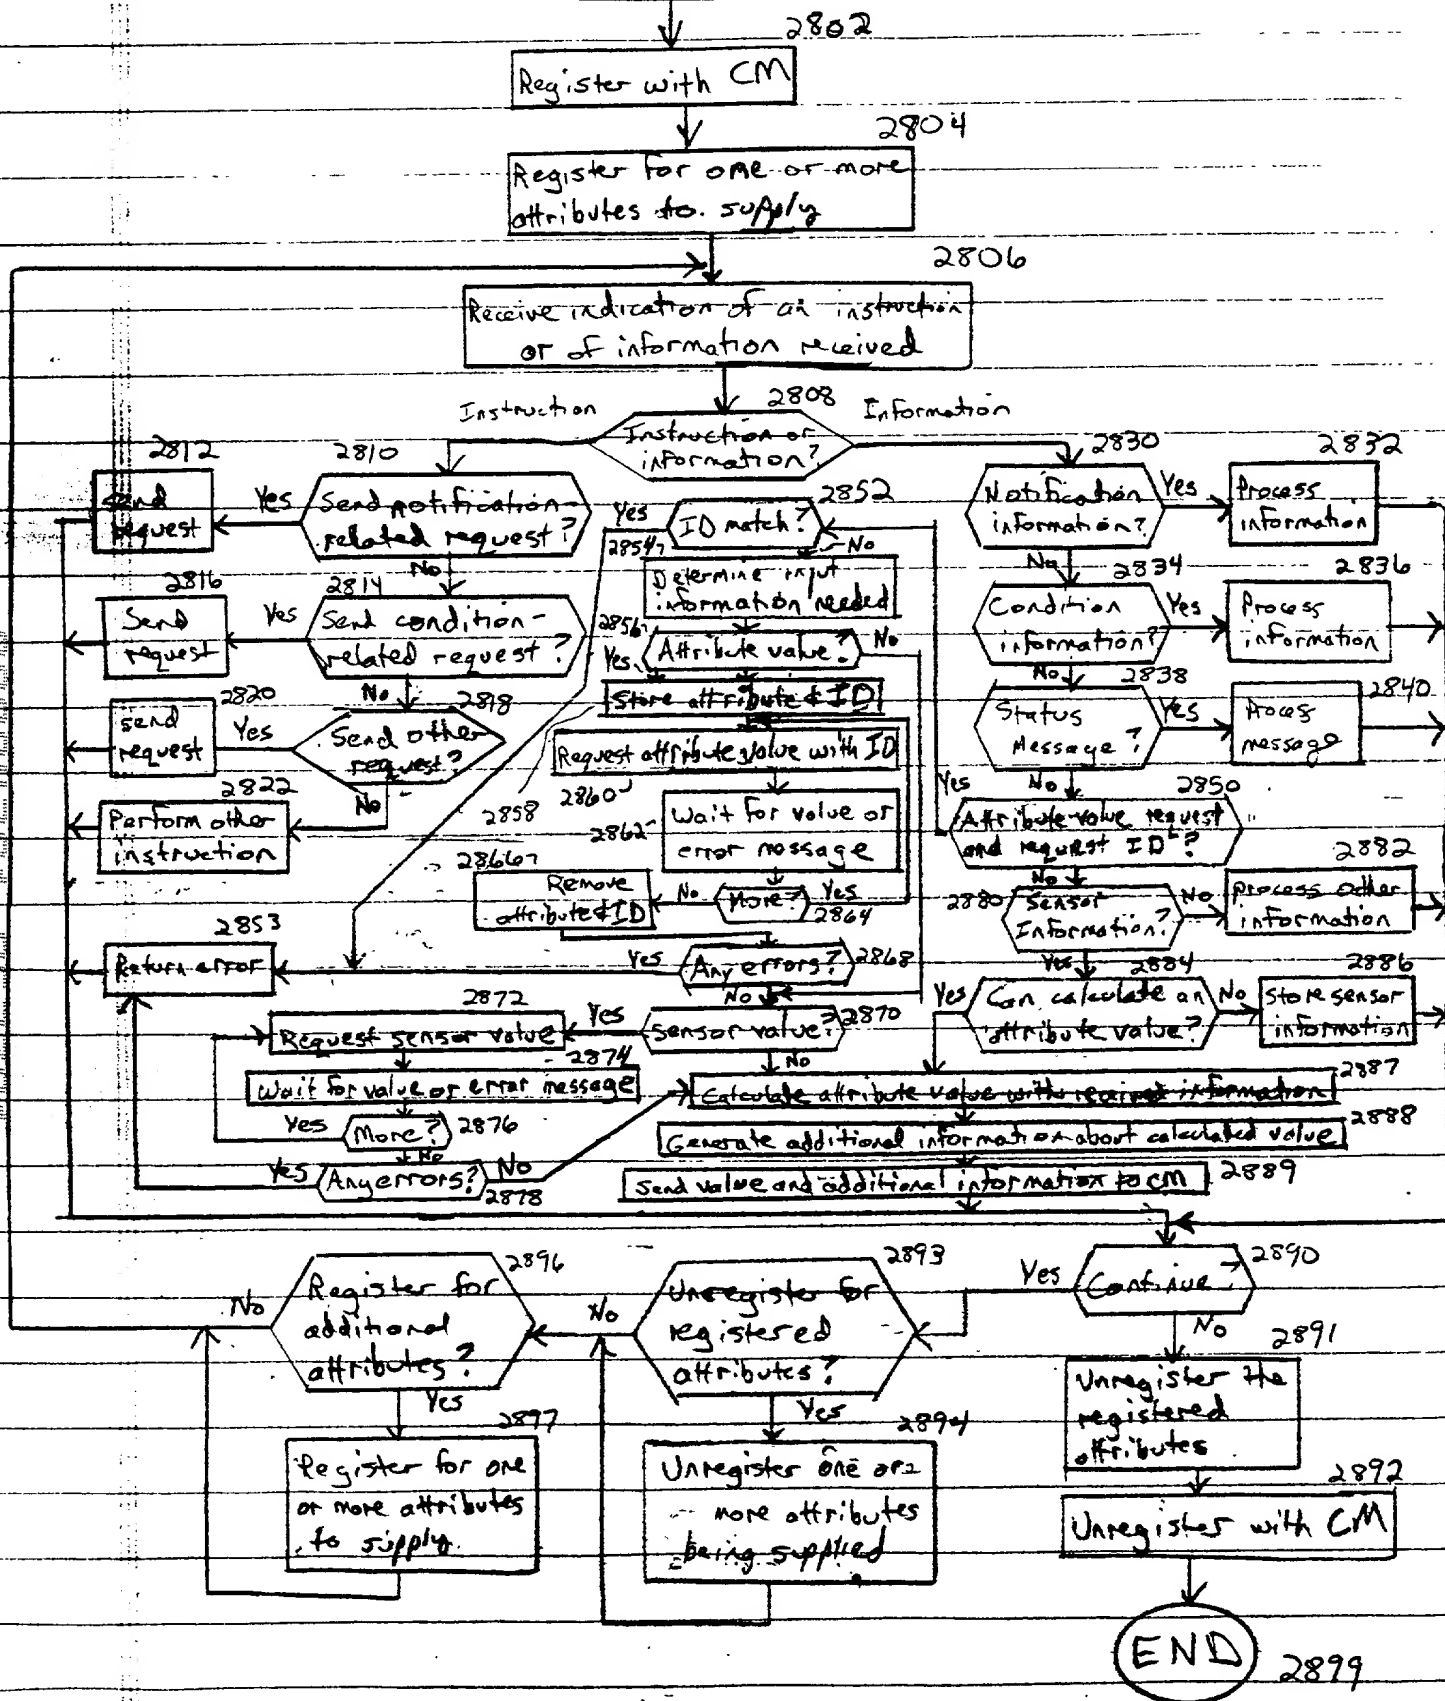 2802
Register with CM
2804
Register for one or more
attributes to supply
2806
Receive indication of an instruction
or of information received
2808
Instruction
Information
Instruction or
information?
2812
Send
request
Yes
2810
Send notification-
related request?
No
2816
Send
request
Yes
2814
Send condition-
related request?
No
2820
Send
request
Yes
2818
Send other
request?
No
2822
Perform other
instruction
2852
Yes
ID match?
No
2854
Determine input
information needed
2856
Attribute value?
No
Yes
Store attribute & ID
2858
Request attribute value with ID
2860
Wait for value or
error message
2862
2866
Remove
attribute & ID
No
More?
Yes
2864
2853
Return error
Yes
Any errors?
2868
No
2872
Request sensor value
Yes
Sensor value?
2870
No
2874
Wait for value or error message
Yes
More?
2876
No
Yes
Any errors?
No
2878
2830
Notification
information?
Yes
2832
Process
information
No
2834
Condition
information?
Yes
2836
Process
information
No
2838
Status
Message?
Yes
2840
Process
message
Yes
No
2850
Attribute value request
and request ID?
No
2880
Sensor
Information?
No
2882
Process other
information
Yes
2884
Yes
Can calculate an
attribute value?
No
2886
Store sensor
information
2887
Calculate attribute value with received information
2888
Generate additional information about calculated value
2889
Send value and additional information to CM
2890
Yes
Continue?
No
2891
Unregister the
registered
attributes
2892
Unregister with CM
END
2899
2893
No
Unregister for
registered
attributes?
Yes
2894
Unregister one or
more attributes
being supplied
2896
No
Register for
additional
attributes?
Yes
2897
Register for one
or more attributes
to supply